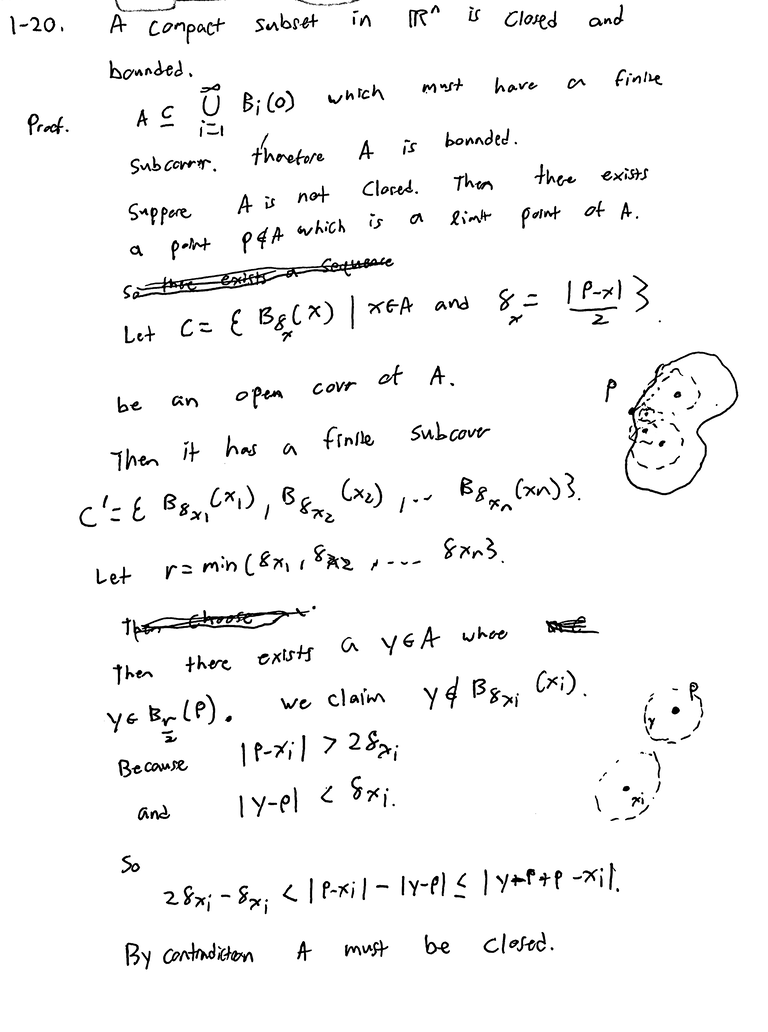 1-20. A compact subset in ℝⁿ is closed and
bounded.
Proof. A ⊆ ⋃_{i=1}^{∞} B_i(0) which must have a finite
subcover. therefore A is bounded.
Suppose A is not closed. Then there exists
a point p∉A which is a limit point of A.
So there exists a sequence
Let C = { B_{δ_x}(x) | x∈A and δ_x = |p-x|/2 }.
be an open cover of A.
p
Then it has a finite subcover
C' = { B_{δ_{x_1}}(x_1), B_{δ_{x_2}}(x_2), ... B_{δ_{x_n}}(x_n) }.
Let r = min{ δ_{x_1}, δ_{x_2}, .... δ_{x_n} }.
Then choose
Then there exists a y∈A where
y∈B_{r/2}(p). we claim y∉B_{δ_{x_i}}(x_i).
p
y
Because |p-x_i| > 2δ_{x_i}
x_i
and |y-p| < δ_{x_i}.
So
2δ_{x_i} - δ_{x_i} < |p-x_i| - |y-p| ≤ |y+p+p-x_i|.
By contradiction A must be closed.